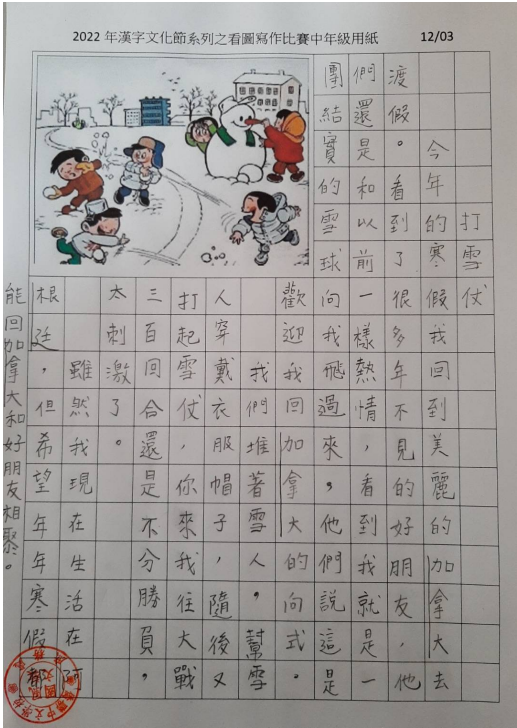 2022 年漢字文化節系列之看圖寫作比賽中年級用紙 12/03
打雪仗
今年的寒假我回到美麗的加拿大去
渡假。看到了很多年不見的好朋友，他
們還是和以前一樣熱情，看到我就是一
團結實的雪球向我飛過來，他們說這是
歡迎我回加拿大的向式。
我們堆著雪人，幫雪
人穿戴衣服帽子，隨後又
打起雪仗，你來我往大戰
三百回合還是不分勝負，
太刺激了。
雖然我現在生活在阿
根廷，但希望年年寒假都
能回加拿大和好朋友相聚。